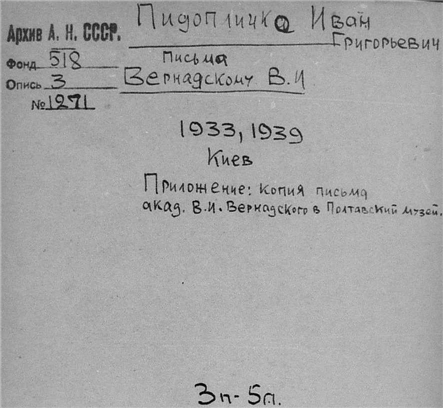 Пидопличко Иван
Григорьевич
Архив А. Н. СССР.
Фонд 518
Опись 3
№ 1271
Письма
Вернадскому В.И
1933, 1939
Киев
Приложение: копия письма
акад. В.И. Вернадского в Полтавский музей.
3п-5л.